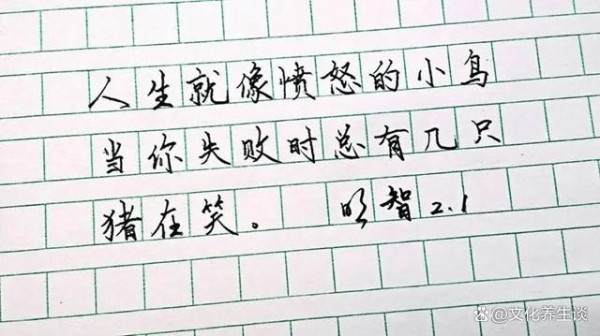 人生就像愤怒的小鸟
当你失败时总有几只
猪在笑。 明智2.1
@文化养生谈